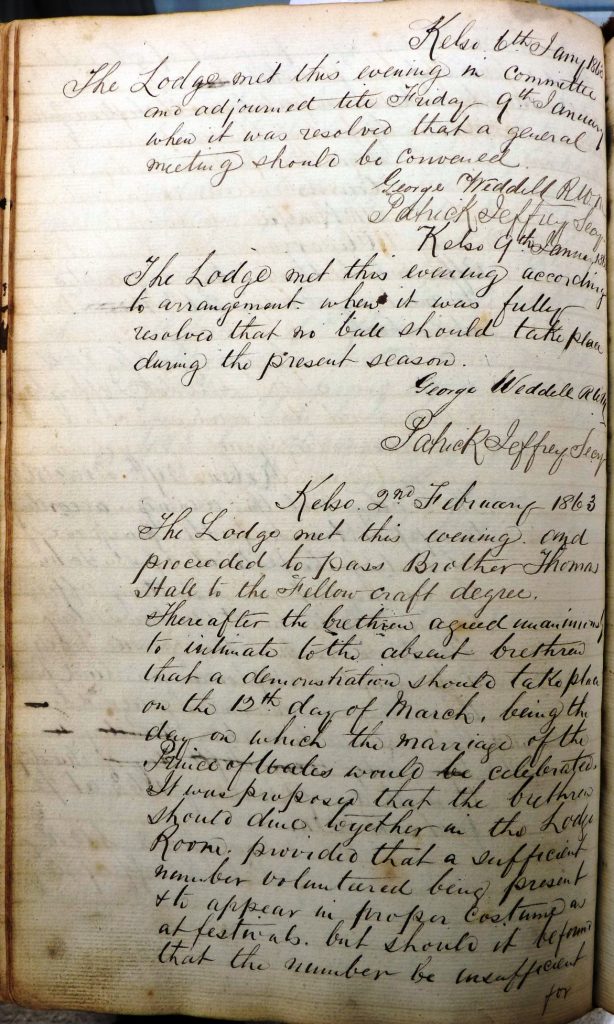 Kelso 6th Jany 1863
The Lodge met this evening in committee
and adjourned till Friday 9th January
when it was resolved that a general
meeting should be convened.
George Weddell R.W.M
Patrick Jeffrey Secy
Kelso 9th January
The Lodge met this evening according
to arrangement. when it was fully
resolved that no ball should take place
during the present season.
George Weddell R.W.M
Patrick Jeffrey Secy
Kelso. 2nd February 1863
The Lodge met this evening. and
proceeded to pass Brother Thomas
Hall to the Fellow craft degree.
Thereafter the brethren agreed
to intimate to the absent brethren
that a demonstration should take place
on the 12th day of March, being the
day on which the marriage of the
Prince of Wales would be celebrated.
It was proposed that the brethren
should dine together in the Lodge
Room. provided that a sufficient
number voluntured being present
&to appear in proper costume as
at festivals. but should it be found
that the number be insufficient
for